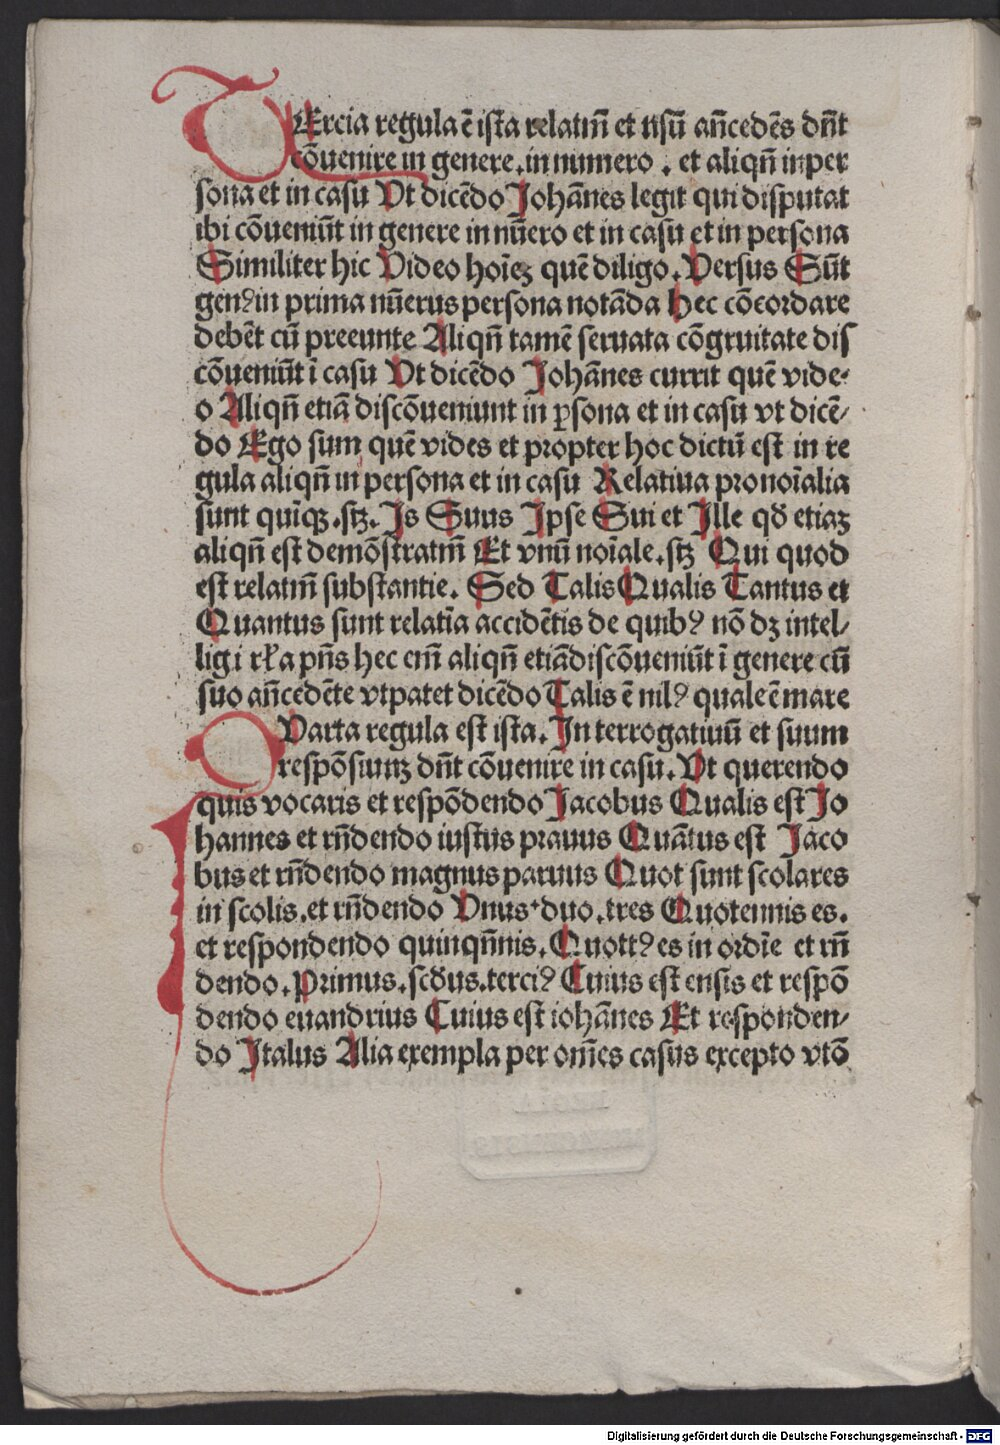 TErcia regula ē ista relatiuū et suū an̄cedēs dn̄t
cōuenire in genere.in numero . et aliqn̄ in per
sona et in casu Ut dicēdo Johānes legit qui disputat
ibi cōueniūt in genere in nūero et in casu et in persona
Similiter hic Video hoīeꝫ quē diligo. Versus Sūt
genꝰ in prima nūerus persona notāda Hec cōcordare
debēt cū preeunte Aliqn̄ tamē seruata cōgruitate dis
cōueniūt ī casu Ut dicēdo Johānes currit quē vide-
o Aliqn̄ etiā discōueniunt in ꝑsona et in casu vt dicē/
do Ego sum quē vides et propter hoc dictū est in re
gula aliqn̄ in persona et in casu Relatiua pronoīalia
sunt quīqꝫ.sꝫ. Js Suus Jpse Sui et Jlle qđ etiaꝫ
aliqn̄ est demōstratiuū Et vnū noīale.sꝫ Qui quod
est relatiuū substantie. Sed Talis Qualis Tantus et
Quantus sunt relatīa accidētis de quibꝰ nō dꝫ intel/
ligi rł̄a pn̄s hec em̄ aliqn̄ etiā discōueniūt ī genere cū
suo an̄cedēte vt patet dicēdo Talis ē nilꝰ quale ē mare
QUarta regula est ista. Jn terrogatiuū et suum
respōsiuuꝫ dn̄t cōuenire in casu. Ut querendo
quis vocaris et respōdendo Jacobus Qualis est Jo
hannes et rn̄dendo iustus prauus Quātus est Jaco
bus et rn̄dendo magnus paruus Quot sunt scolares
in scolis.et rn̄dendo Vnus.duo.tres Quotennis es.
et respondendo quinqn̄nis. Quottꝰ es in ordīe et rn̄
dendo. Primus.scđus.terciꝰ Cuius est ensis et respō
dendo euandrius Cuius est iohānes Et responden/
do Jtalus Alia exempla per om̄es casus excepto vtō
Digitalisierung gefördert durch die Deutsche Forschungsgemeinschaft - DFG